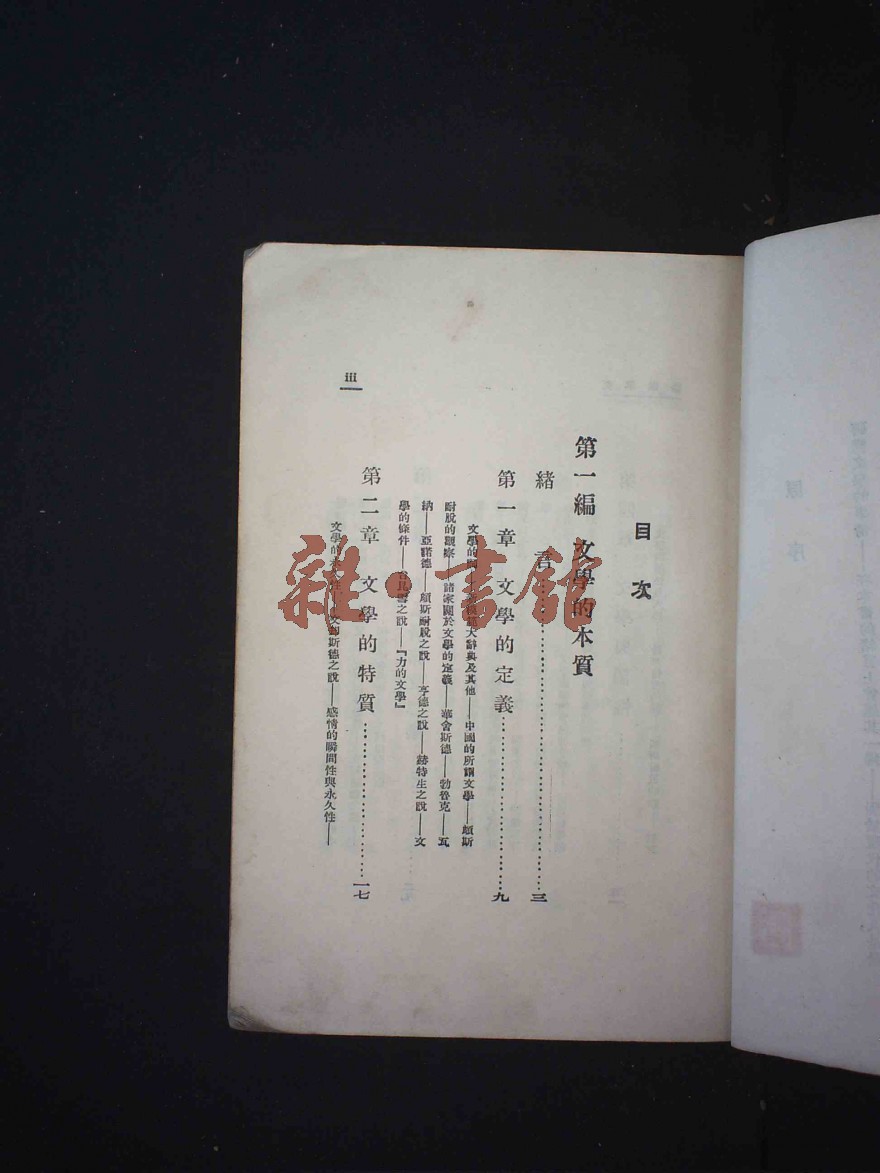 目次
第一編 文學的本質
緒言……三
第一章 文學的定義……九
文學的 大辭典及其他——中國的所謂文學——頗斯
耐脫的觀察——諸家關於文學的定義——華舍斯德——勃魯克——瓦
納——亞諾德——頗斯耐脫之說——亨德之說——赫特生之說——文
學的條件—— 之說——『力的文學』
第二章 文學的特質……一七
文學的永久性—— 斯德之說——感情的瞬間性與永久性——
iii
雜·書館
原序